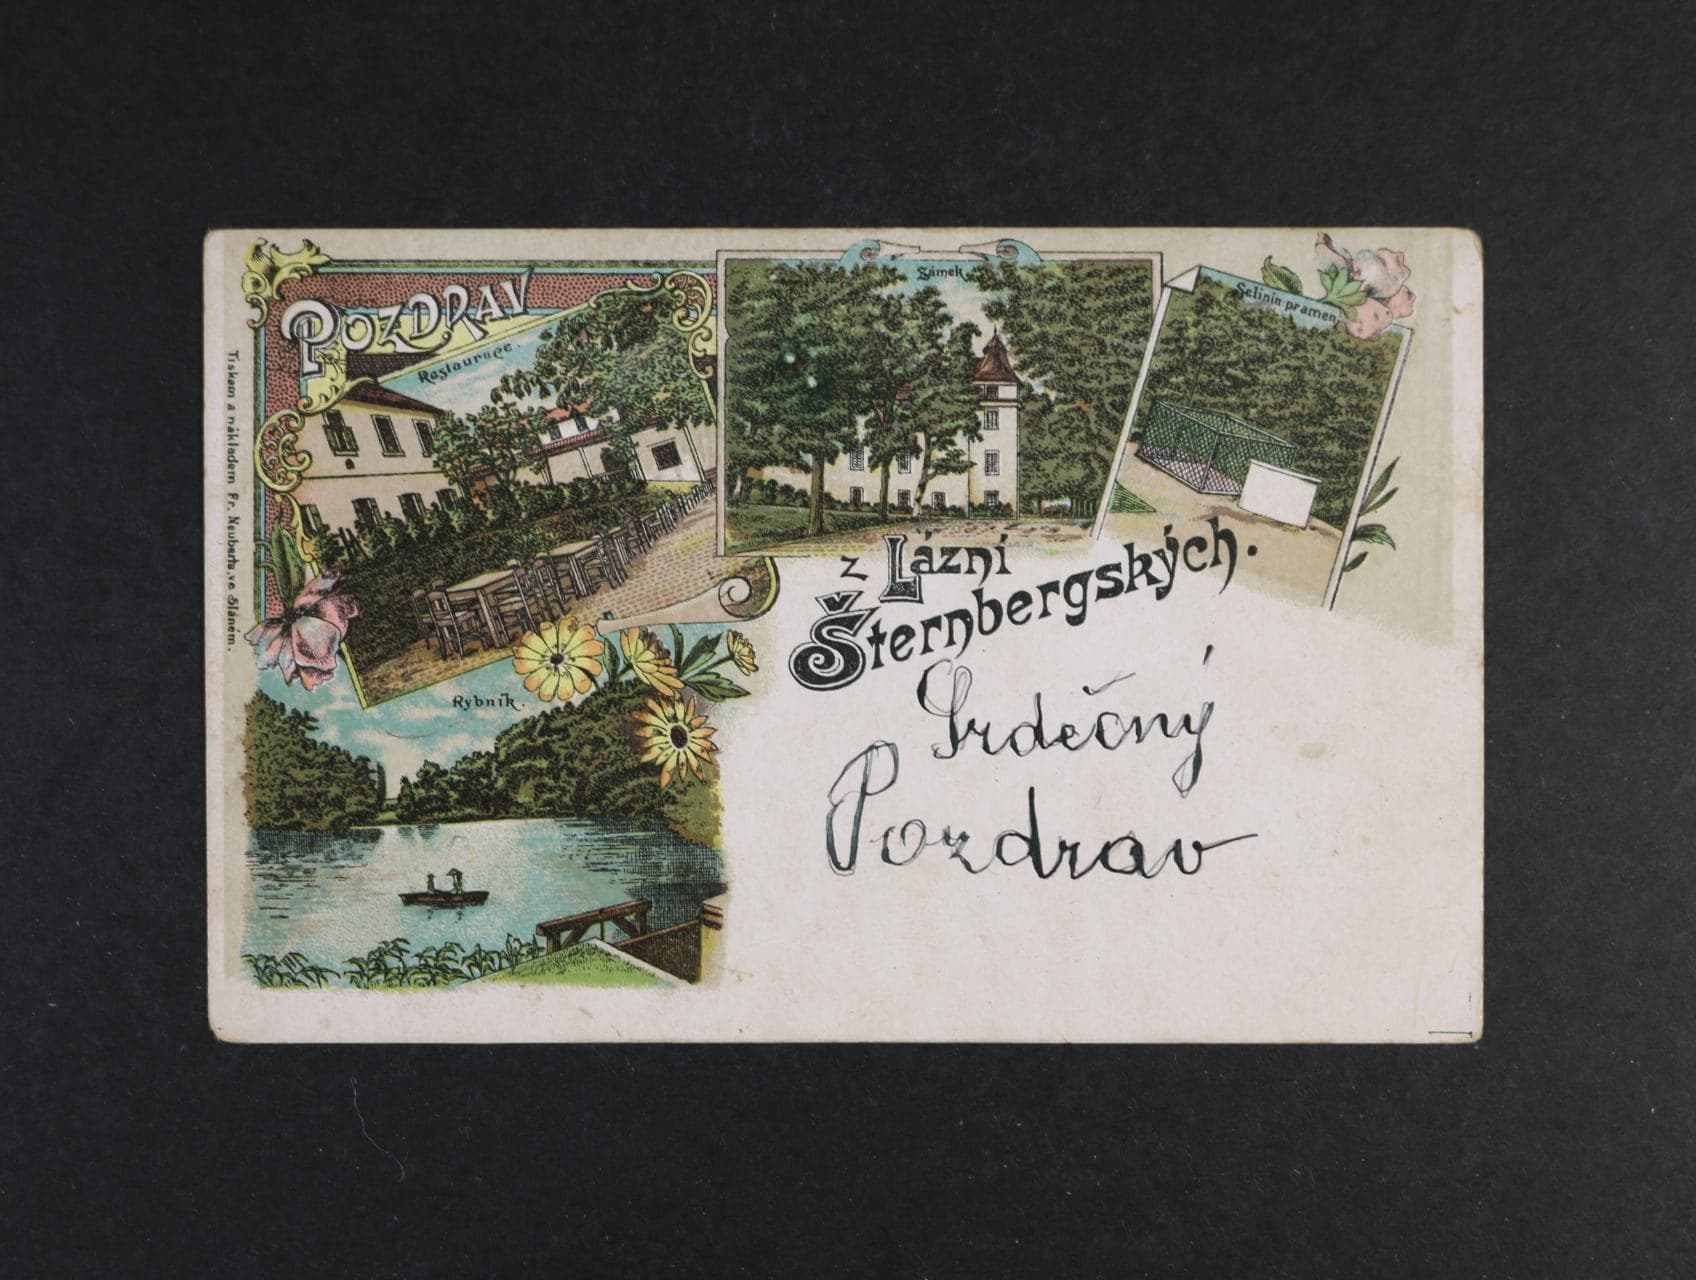 POZDRAV
Restaurace.
Zámek
Selinin pramen
z Lázní
Šternbergských.
Rybník.
Srdečný
Pozdrav
Tiskem a nákladem Fr. Neuberta, ve Slaném.